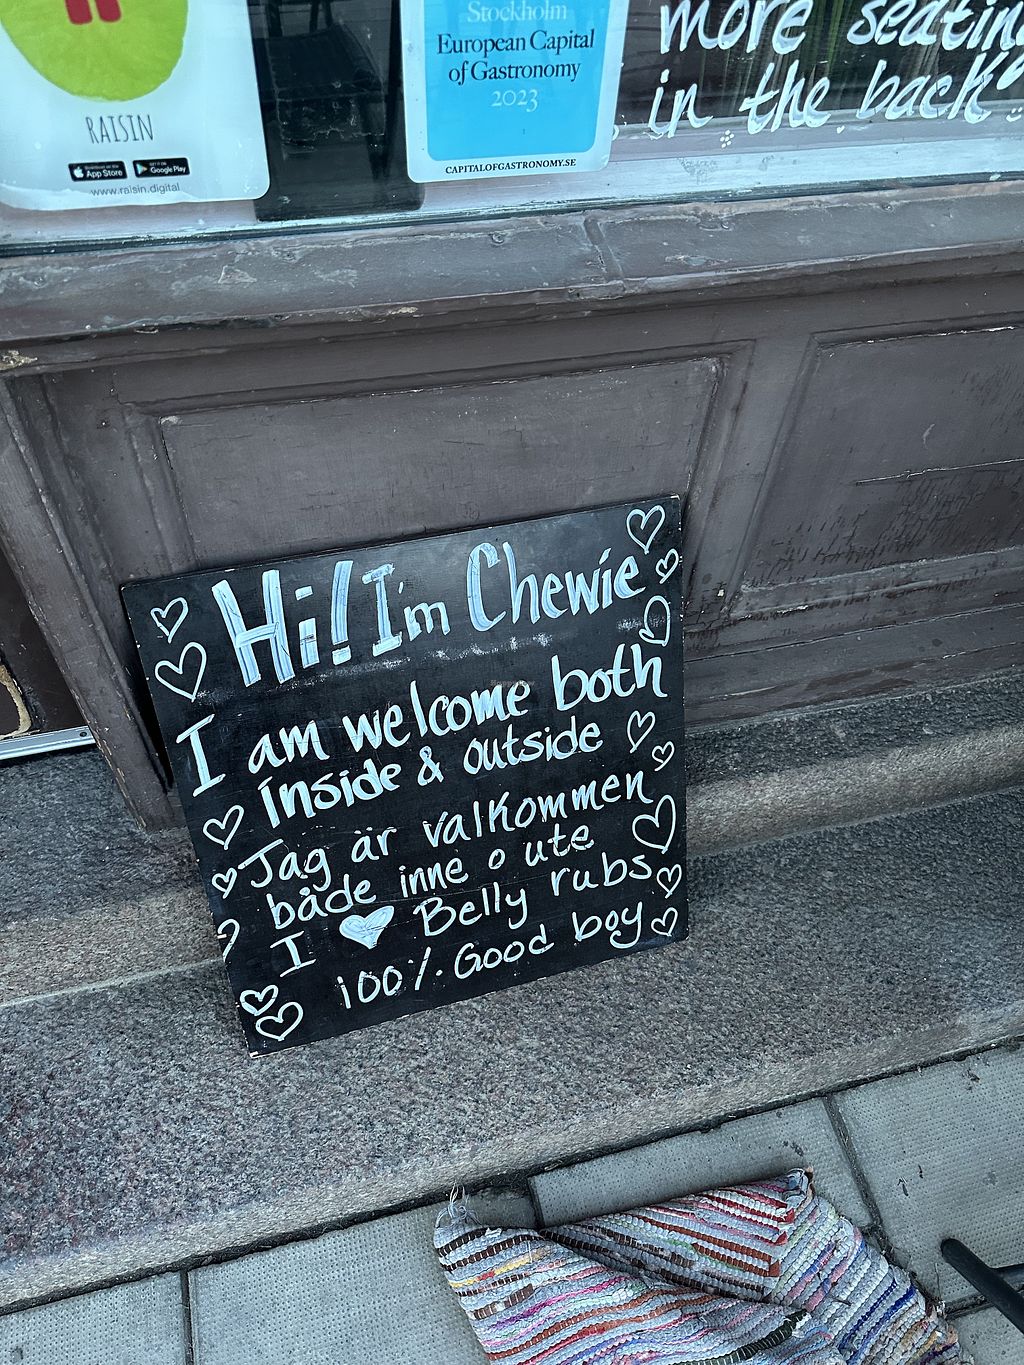 RAISIN
Download on the App Store
GET IT ON Google Play
www.raisin.digital
Stockholm
European Capital
of Gastronomy
2023
CAPITALOFGASTRONOMY.SE
more seating
in the back
Hi! I'm Chewie
I am welcome both
inside & outside
Jag är valkommen
både inne o ute
I ♥ Belly rubs
100% Good boy